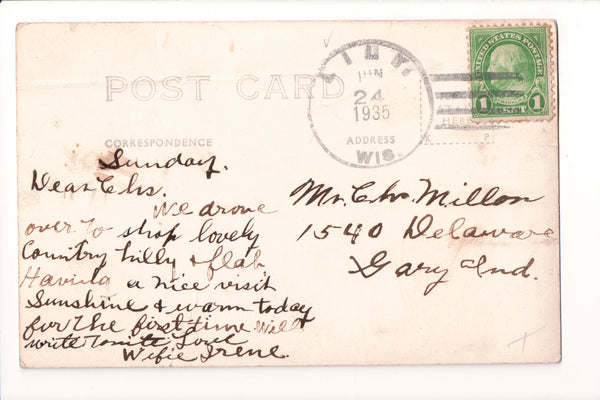 POST CARD
LILY
JUN
24
1935
WIS.
UNITED STATES POSTAGE
1 CENT 1
HERE
K P
CORRESPONDENCE
ADDRESS
Sunday.
Dear Chs.
We drove
over to shop lovely
Country hilly & flat
Having a nice visit
Sunshine & warm today
for the first time will
write Love
Wifie Irene.
Mr. Chs. Millon
1540 Delaware
Gary Ind.